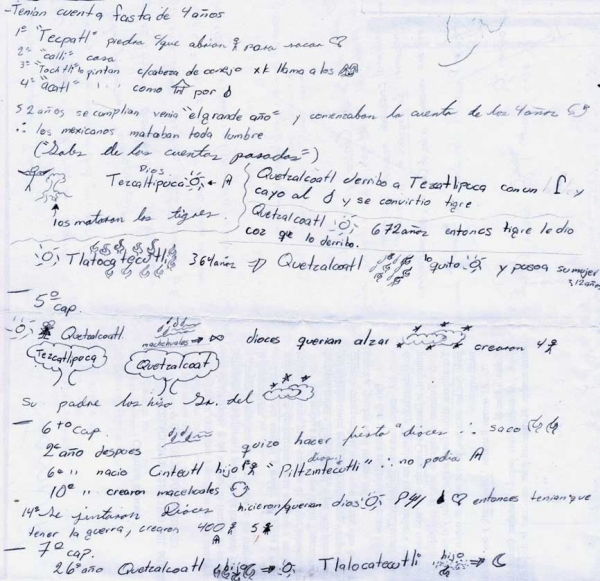 -Tenían cuenta fasta de 4 años
1º "Tecpatl" piedra q/que abrían para sacar
2º "calli" casa
3º "Tochtli" lo pintan c/cabeza de conejo xk llama a los
4º "acatl" " " como por
52 años se cumplian venia "el grande año" y comenzaban la cuenta de los 4 años
∴ los mexicanos mataban toda lumbre
de las cuentas pasadas")
Dios
Tezcaltipuca
los mataron los tigres.
Quetzalcoatl derribo a Tezcatlipuca con un y
cayo al y se convirtio tigre
Quetzalcoatl 672 años entonces tigre le dio
coz que lo derribo.
Tlatocatecutli 364 años ⇒ Quetzalcoatl lo quito y pone a su mujer
312 años
5º
cap.
Quetzalcoatl macehuales → dioces querian alzar crearon 4
Tezcatlipuca Quetzalcoat
Su padre los hizo Sr. del
6to cap.
2º año despues quizo hacer fiesta a dioces ∴ saco
6º " nacio Cinteutl hijo 1º "Piltzintecutli" ∴ no podia
10º " crearon macehuales
14º Se juntaron Dioces hicieron/querian dios entonces tenian que
tener la guerra, crearon 400 5
7º
cap.
26º año Quetzalcoatl hijo ⇒ Tlalocatecutli hijo ⇒